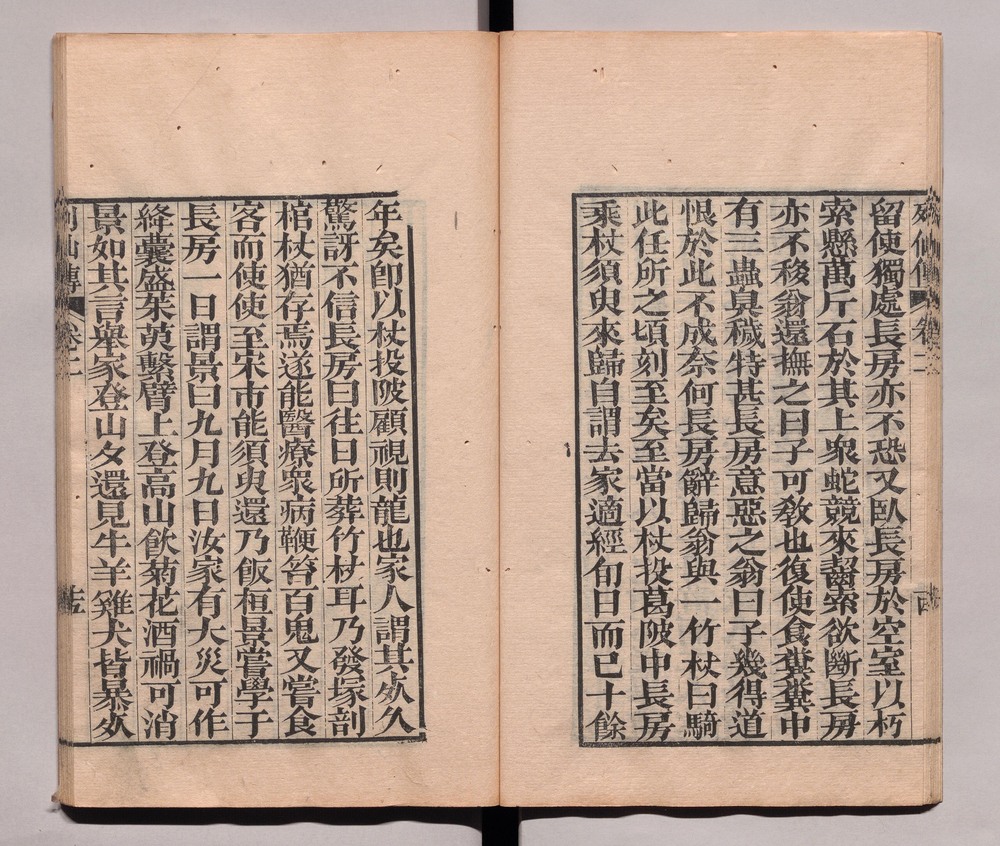 列仙傳 卷二
留使獨處長房亦不恐又臥長房於空室以朽
索懸萬斤石於其上衆蛇競來齧索欲斷長房
亦不移翁還撫之曰子可敎也復使食糞糞中
有三蟲臭穢特甚長房意惡之翁曰子幾得道
恨於此不成奈何長房辭歸翁與一竹杖曰騎
此任所之頃刻至矣至當以杖投葛陂中長房
乘杖須臾來歸自謂去家適經旬日而已十餘
年矣卽以杖投陂顧視則龍也家人謂其死久
驚訝不信長房曰往日所葬竹杖耳乃發塚剖
棺杖猶存焉遂能醫療衆病鞭笞百鬼又嘗食
客而使使至宋市能須臾還乃飯桓景嘗學于
長房一日謂景曰九月九日汝家有大災可作
絳囊盛茱萸繫臂上登高山飲菊花酒禍可消
景如其言舉家登山夕還見牛羊雞犬皆暴死
列仙傳 卷二